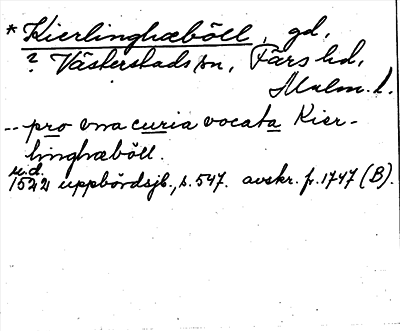 *Kierlinghæböll, gd,
? Västerstads sn, Färs hd,
Malm. l.
-- pro vna curia vocata Kier-
linghæböll.
u.d.
1522 uppbördsjb., s. 547. avskr. fr. 1747 (B).